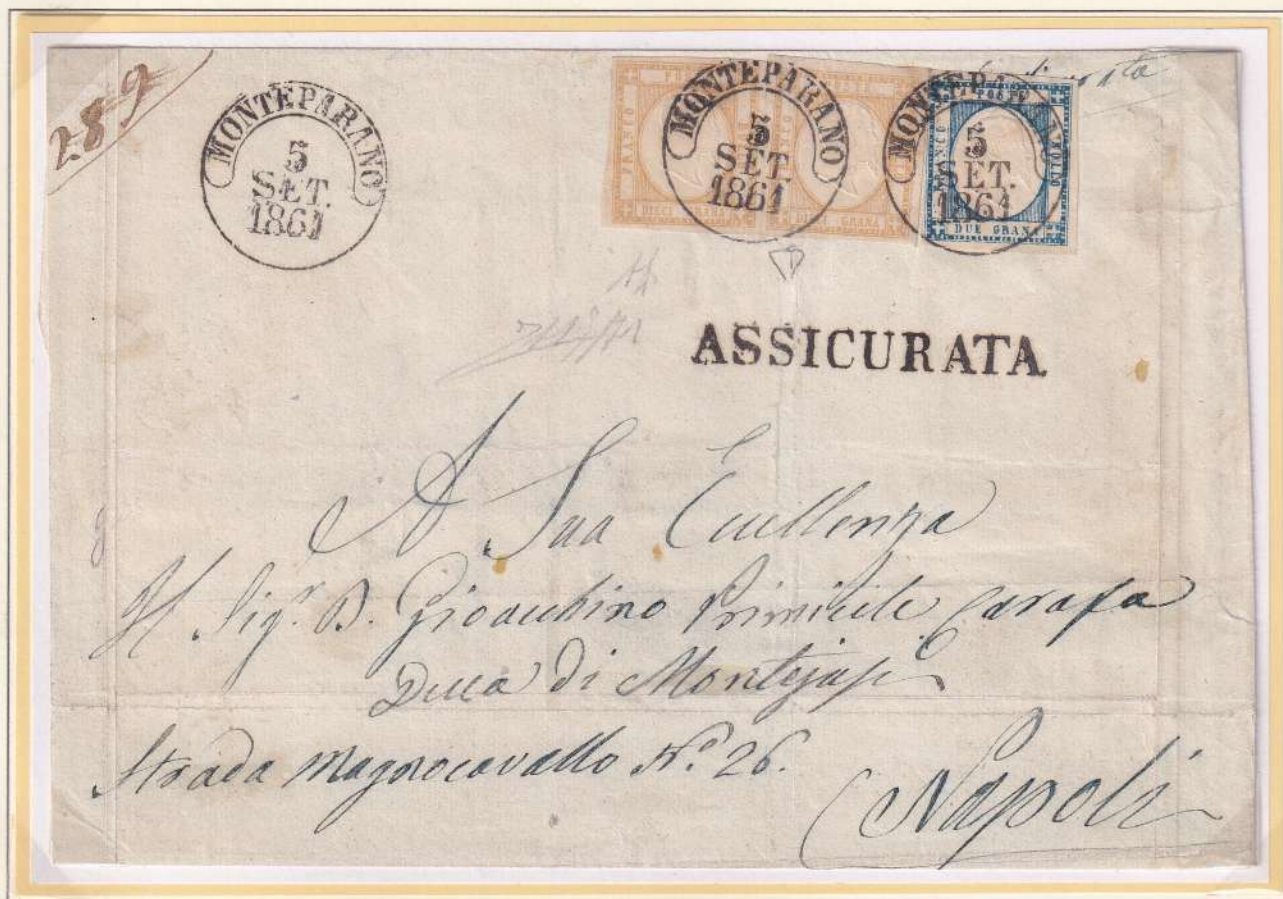 289
MONTEPARANO
5
SET.
1861
MONTEPARANO
5
SET.
1861
DIECI GRANA
DUE GRANA
MONTEPARANO
5
SET.
1861
ASSICURATA
A Sua Eccellenza
Il Sig.r D. Gioacchino Primicile Carafa
Duca di Montejasi
Strada Magnocavallo N.o 26.
Napoli